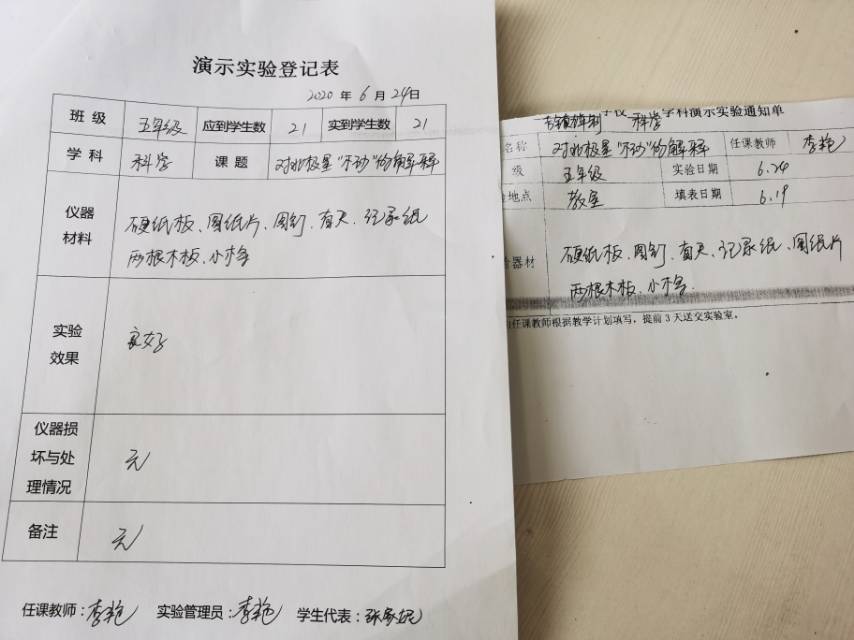 演示实验登记表
2020 年 6 月 24日
班 级 五年级 应到学生数 21 实到学生数 21
学 科 科学 课 题 对北极星"不动"的解释
仪器
材料
硬纸板、圆纸片、图钉、直尺、记录纸
两根木板、小木
实验
效果
良好
仪器损
坏与处
理情况
无
备注
无
任课教师:李艳 实验管理员:李艳 学生代表:张家
科学 学科演示实验通知单
名称 对北极星"不动"的解释 任课教师 李艳
级 五年级 实验日期 6.24
地点 教室 填表日期 6.19
器材
硬纸板、图钉、直尺、记录纸、圆纸片
两根木板、小木
任课教师根据教学计划填写,提前3天送交实验室。